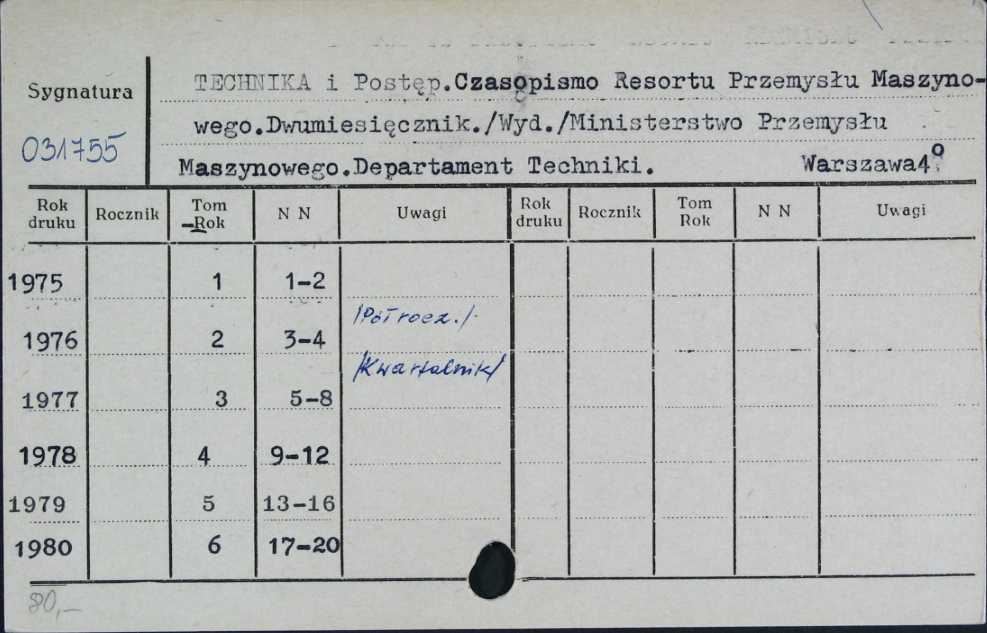 Sygnatura
031755
TECHNIKA i Postęp.Czasopismo Resortu Przemysłu Maszyno-
wego.Dwumiesięcznik./Wyd./Ministerstwo Przemysłu
Maszynowego.Departament Techniki. Warszawa4°
Rok druku Rocznik Tom Rok N N Uwagi Rok druku Rocznik Tom Rok N N Uwagi
1975 1 1-2
/Półrocz./
1976 2 3-4
/Kwartalnik/
1977 3 5-8
1978 4 9-12
1979 5 13-16
1980 6 17-20
80,-